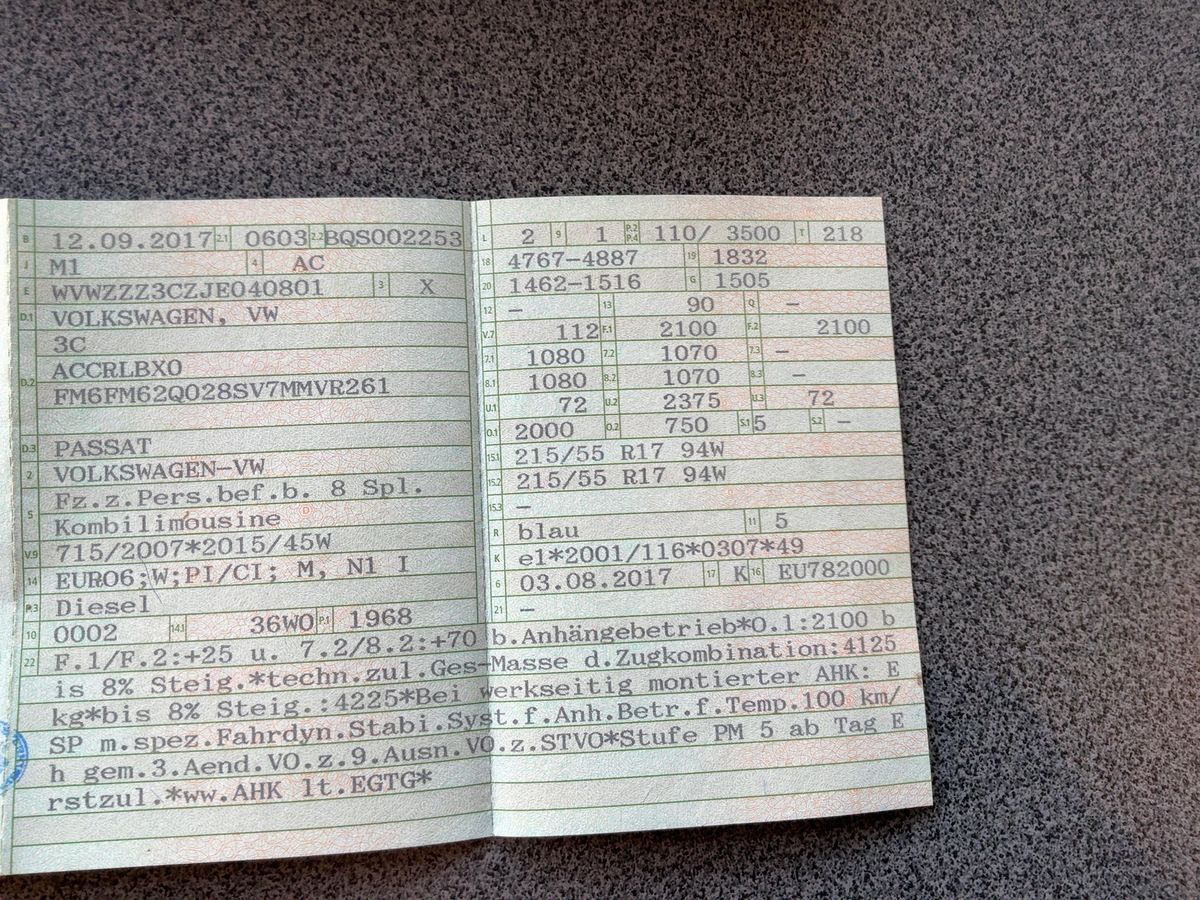 B 12.09.2017 2.1 0603 2.2 BQS002253
J M1 4 AC
E WVWZZZ3CZJE040801 3 X
D.1 VOLKSWAGEN, VW
3C
D.2 ACCRLBX0
FM6FM62Q028SV7MMVR261
D.3 PASSAT
2 VOLKSWAGEN-VW
5 Fz.z.Pers.bef.b. 8 Spl.
Kombilimousine
V.9 715/2007*2015/45W
14 EURO6;W;PI/CI; M, N1 I
P.3 Diesel
10 0002 14.1 36W0 P.1 1968
L 2 9 1 P.2 P.4 110/ 3500 T 218
18 4767-4887 19 1832
20 1462-1516 G 1505
12 – 13 90 Q –
V.7 112 F.1 2100 F.2 2100
7.1 1080 7.2 1070 7.3 –
8.1 1080 8.2 1070 8.3 –
U.1 72 U.2 2375 U.3 72
O.1 2000 O.2 750 S.1 5 S.2 –
15.1 215/55 R17 94W
15.2 215/55 R17 94W
15.3 –
R blau 11 5
K e1*2001/116*0307*49
6 03.08.2017 17 K 16 EU782000
21 –
22 F.1/F.2:+25 u. 7.2/8.2:+70 b.Anhängebetrieb*O.1:2100 b
is 8% Steig.*techn.zul.Ges-Masse d.Zugkombination:4125
kg*bis 8% Steig.:4225*Bei werkseitig montierter AHK: E
SP m.spez.Fahrdyn.Stabi.Syst.f.Anh.Betr.f.Temp.100 km/
h gem.3.Aend.VO.z.9.Ausn.VO.z.STVO*Stufe PM 5 ab Tag E
rstzul.*ww.AHK lt.EGTG*